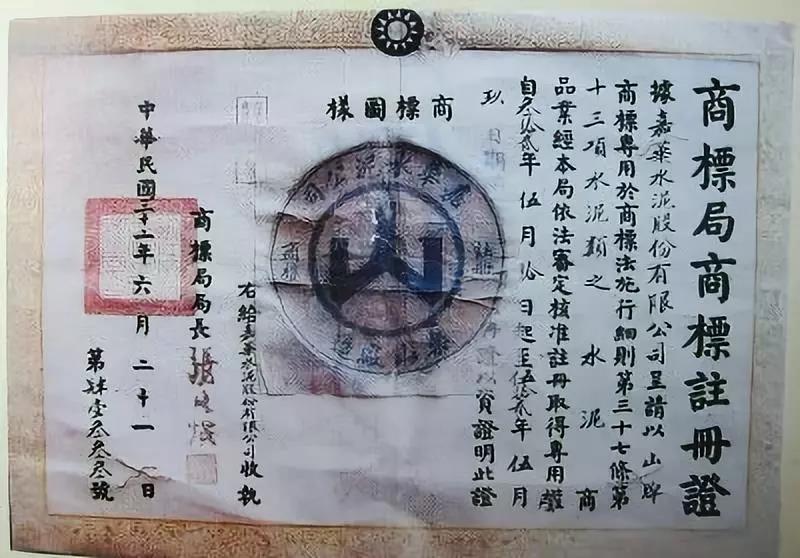 商標局商標註冊證
據嘉華水泥股份有限公司呈請以山牌
商標專用於商標法施行細則第三十七條第
十三項水泥類之水泥商
品業經本局依法審定核准註冊取得專用權
自叁拾貳年伍月拾日起至伍拾貳年伍月
玖日期
資證明此證
商標圖樣
嘉華水泥公司
註冊
商標
山
右給嘉華水泥股份有限公司收執
商標局局長張
中華民國三十二年六月二十一日
第肆壹叁叁叁號